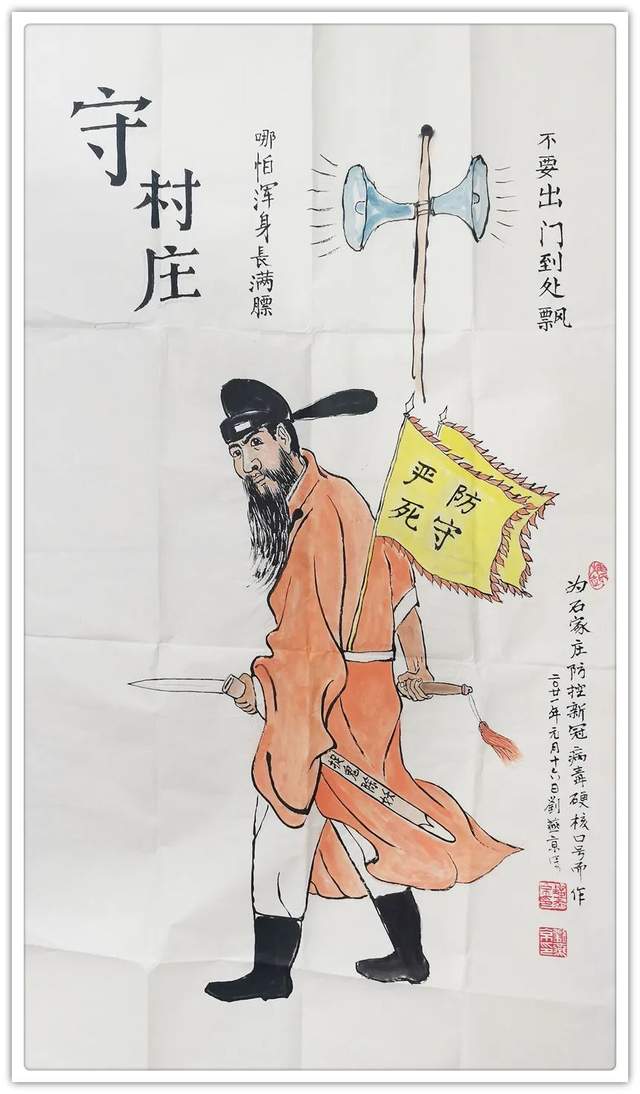 守村庄
哪怕浑身長满膘
不要出门到处飘
严防
死守
捉鬼除妖
为石家庄防控新冠病毒硬核口号而作
二〇廿一年元月十六日劉燕京